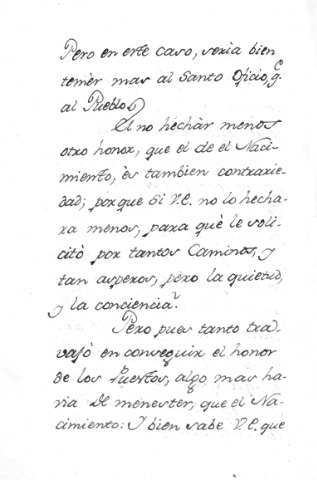 Pero en este caso, seria bien
temèr mas al Santo Oficio, q.e
al Pueblo.
El no hechàr menos
otro honor, que el de el Naci-
miento, ès tambien contrarie-
dad; porque si V.E. no lo hecha-
ra menos, para què le soli-
citò por tantos Caminos, y
tan asperos, pero la quietud,
y la conciencia?
Pero pues tanto tra-
vajò en conseguir el honor
de los Puestos, algo mas ha-
via de menester, que el Na-
cimiento: Y bien sabe V.E. que